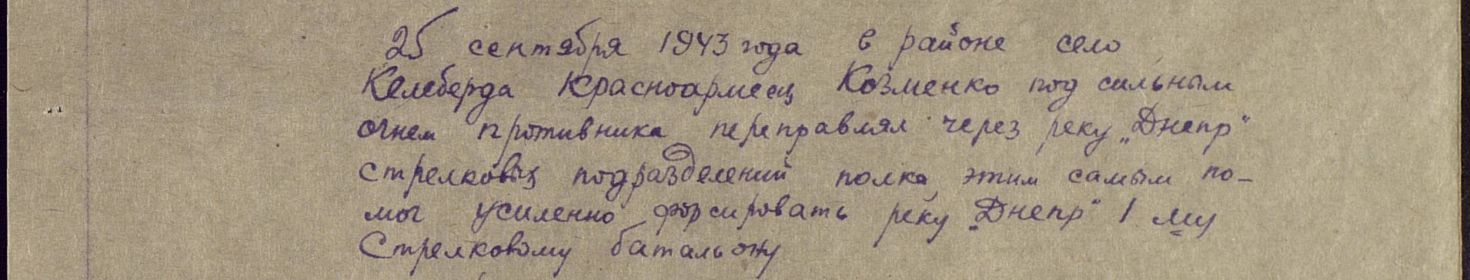 25 сентября 1943 года в районе село
Келеберда Красноармеец Козменко под сильным
огнем противника переправлял через реку „Днепр“
стрелковых подразделений полка, этим самым по-
мог усиленно форсировать реку „Днепр“ 1 му
Стрелковому батальону